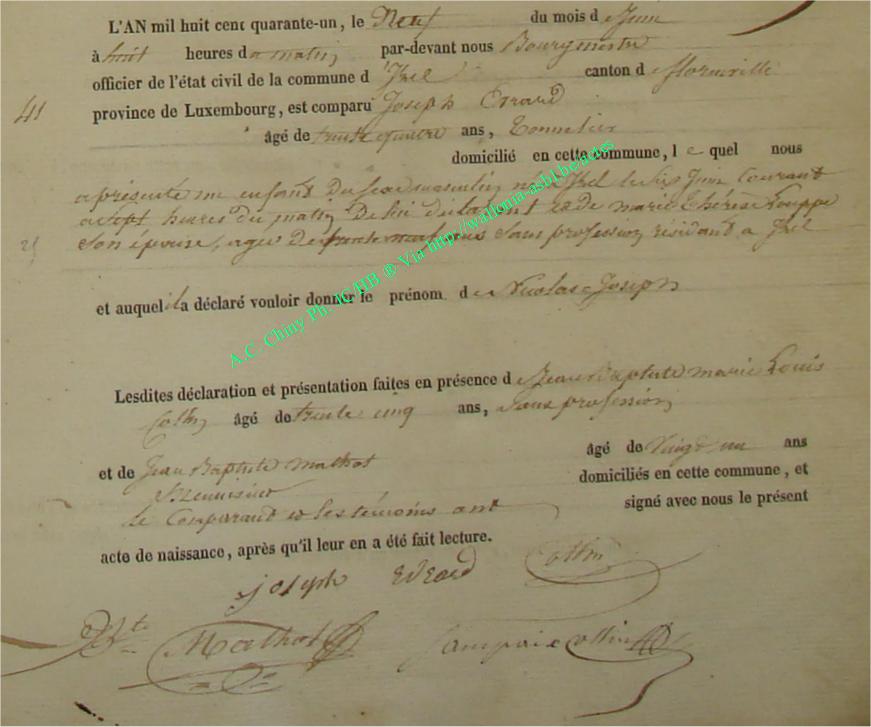 L'AN mil huit cent quarante-un, le Neuf du mois de Juin
à huit heures du matin par-devant nous Bourgmestre
officier de l'état civil de la commune d'Izel canton de Florenville
41 province de Luxembourg, est comparu Joseph Evrard
âgé de trente quatre ans, Tonnelier
domicilié en cette commune, le quel nous
a présenté un enfant du sexe masculin né à Izel le six Juin Courant
à sept heures du matin De lui déclarant et de marie Thérèse Louppe
Son épouse, agée de sans profession résidant à Izel
et auquel il a déclaré vouloir donner le prénom de Nicolas Joseph
Lesdites déclaration et présentation faites en présence de Jean Baptiste marie Louis
Collin âgé de trente cinq ans, sans profession
et de Jean Baptiste Mathot âgé de vingt un ans
Menuisier domiciliés en cette commune, et
le Comparant et les témoins ont signé avec nous le présent
acte de naissance, après qu'il leur en a été fait lecture.
Joseph Evrard
Mathot
A.C. Chiny Ph. IC/HB ® Via http://wallonia-asbl.be/actes